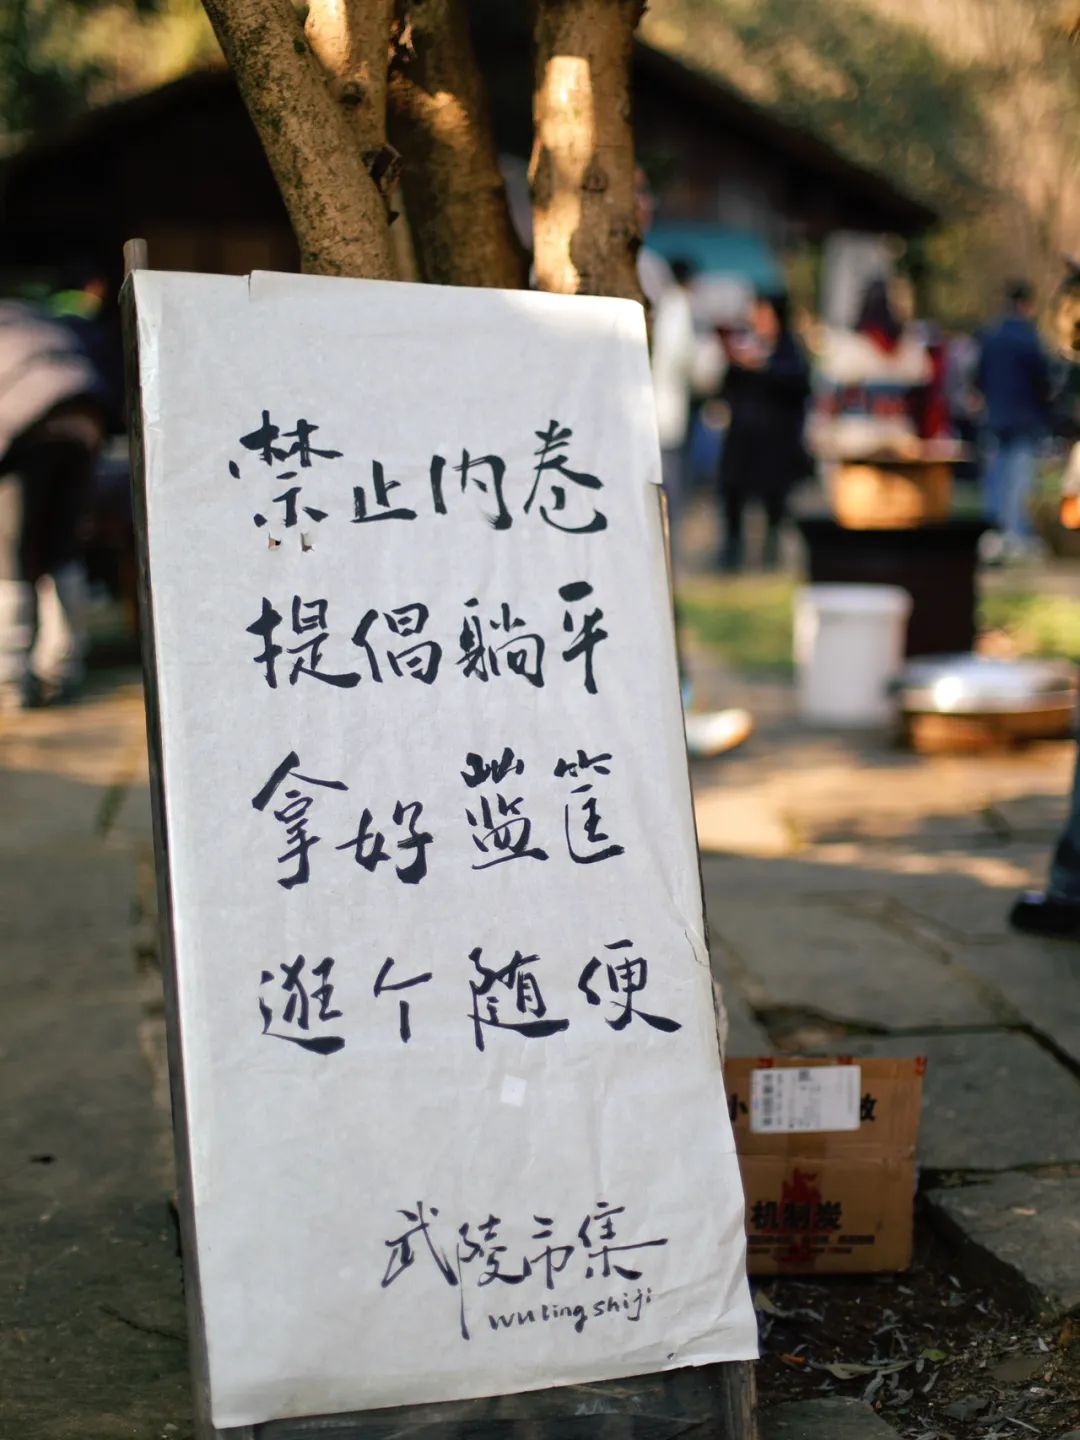 禁止内卷
提倡躺平
拿好蓝筐
逛个随便
武陵市集
wulingshiji
机制炭